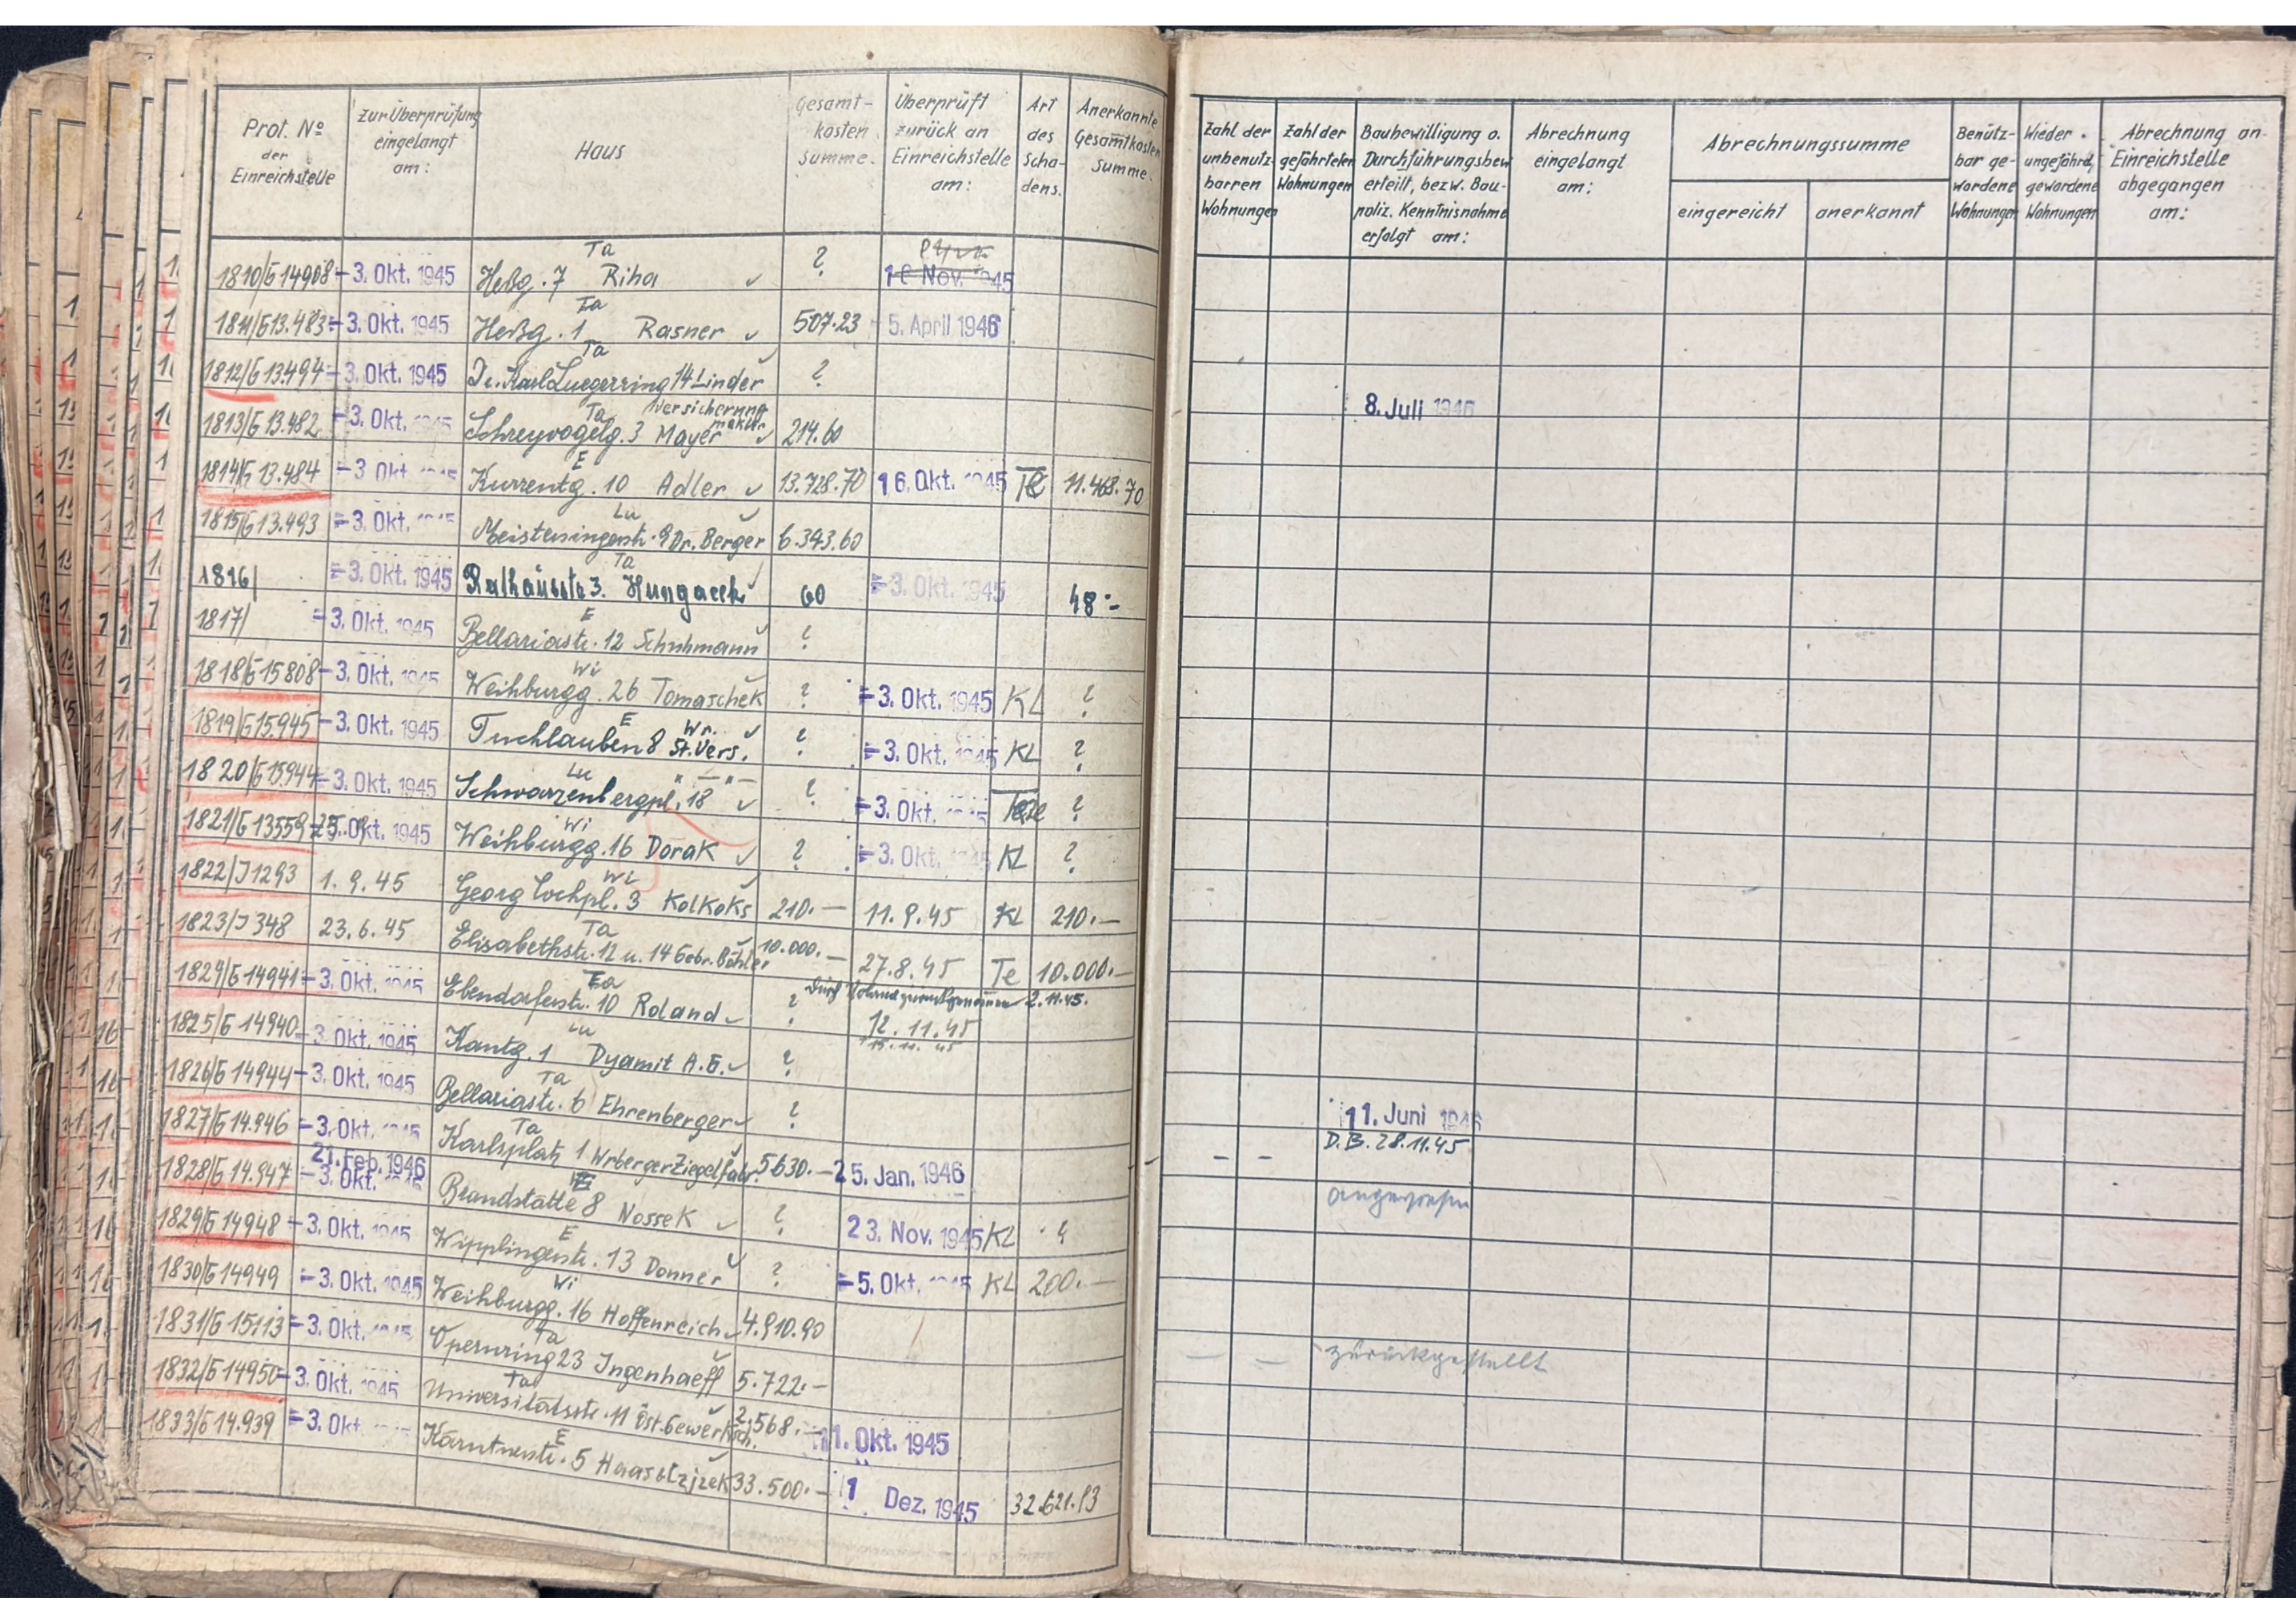 Prot. No der Einreichstelle | Zur Überprüfung eingelangt am: | Haus | Gesamt-kosten summe. | Überprüft zurück an Einreichstelle am: | Art des Scha-dens. | Anerkannte Gesamtkosten Summe. | Zahl der unbenutz-barren Wohnungen | Zahl der gefährteten Wohnungen | Baubewilligung o. Durchführungsbew. erteilt, bezw. Bau-poliz. Kenntnisnahme erfolgt am: | Abrechnung eingelangt am: | Abrechnungssumme eingereicht | anerkannt | Benütz-bar ge-wordene Wohnungen | Wieder ungefährd. gewordene Wohnungen | Abrechnung an Einreichstelle abgegangen am:
1810/G 14908 | -3. Okt. 1945 | Ta Heßg. 7 Riha | ? | Nov. 1945
1811/G 13.483 | -3. Okt. 1945 | Ta Heßg. 1 Rasner | 507.23 | 5. April 1946
1812/G 13.494 | -3. Okt. 1945 | Ta Dr. Karl Luegerring 14 Linder | ?
1813/G 13.482 | -3. Okt. 1945 | Ta Schreyvogelg. 3 Mayer Versicherung makler | 214.60 | 8. Juli 1946
1814/G 13.484 | -3. Okt. 1945 | E Kurrentg. 10 Adler | 13.728.70 | 16. Okt. 1945 | Te | 11.468.70
1815/G 13.493 | -3. Okt. 1945 | Lu Meistersingerstr. 9 Dr. Berger | 6.343.60
1816/ | -3. Okt. 1945 | Ta Rathausstr 3. | 60 | -3. Okt. 1945 | 48.-
1817/ | -3. Okt. 1945 | E Bellariastr. 12 Schuhmann | ?
1818/G 15808 | -3. Okt. 1945 | Wi Weihburgg. 26 Tomaschek | ? | -3. Okt. 1945 | KL | ?
1819/G 15.945 | -3. Okt. 1945 | E Tuchlauben 8 Wr. St. Vers. | ? | -3. Okt. 1945 | KL | ?
1820/G 15.944 | -3. Okt. 1945 | Lu Schwarzenbergpl. 18 " — " — | ? | -3. Okt. 1945 | ?
1821/G 13559 | Okt. 1945 | Wi Weihburgg. 16 Dorak | ? | -3. Okt. 1945 | KL | ?
1822/J 1293 | 1. 9. 45 | Wi Georg Cochpl. 3 Kolkoks | 210.— | 11. 9. 45 | KL | 210.—
1823/J 348 | 23. 6. 45 | Ta Elisabethstr. 12 u. 14 Gebr. Böhler | 10.000.— | 27. 8. 45 | Te | 10.000.—
1824/G 14941 | -3. Okt. 1945 | Ta Ebendorferstr. 10 Roland | ? | Durch Roland zurückgenommen 2. 11. 45.
1825/G 14940 | -3. Okt. 1945 | Lu Kantg. 1 Dyamit A. G. | ? | 12. 11. 45 15. 11. 45
1826/G 14944 | -3. Okt. 1945 | Ta Bellariastr. 6 Ehrenberger | ?
1827/G 14.946 | -3. Okt. 1945 | Ta Karlsplatz 1 Wrberger Ziegelfabr. | 5630.— | 25. Jan. 1946 | 11. Juni 1946 D. B. 28. 11. 45
1828/G 14.947 | 21. Feb. 1946 -3. Okt. 1945 | E Brandstätte 8 Nossek | ? | 23. Nov. 1945 | KL | ? | - | - | angewiesen
1829/G 14948 | -3. Okt. 1945 | E Wipplingerstr. 13 Donner | ? | -5. Okt. 1945 | KL | 200.—
1830/G 14949 | -3. Okt. 1945 | Wi Weihburgg. 16 Hoffenreich | 4.910.90
1831/G 15113 | -3. Okt. 1945 | Ta Opernring 23 Ingenhaeff | 5.722.- | — | — | zurückgestellt
1832/G 14950 | -3. Okt. 1945 | Ta Universitätsstr. 11 Öst. Gewerksch. | 2.568.— | 11. Okt. 1945
1833/G 14.939 | -3. Okt. | E Kärntnerstr. 5 Haas & Czjzek | 33.500.— | 1 Dez. 1945 | 32.621.13